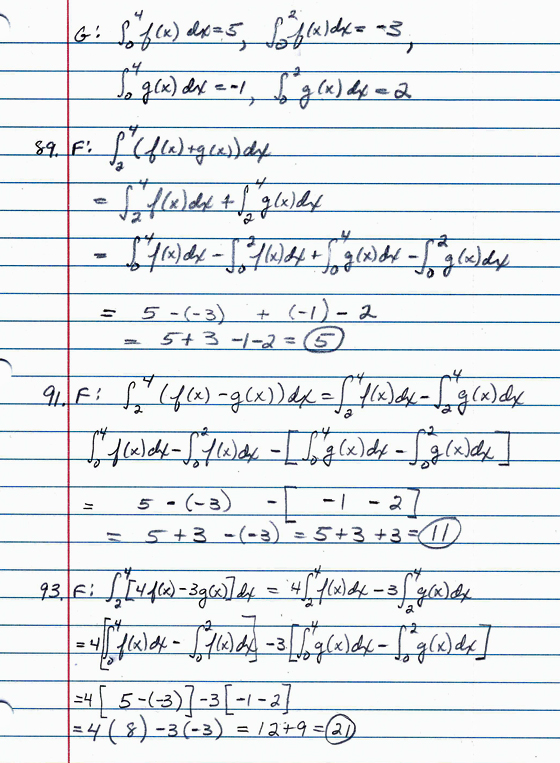 G: ∫₀⁴ f(x) dx = 5, ∫₀² f(x) dx = -3,
∫₀⁴ g(x) dx = -1, ∫₀² g(x) dx = 2
89. F: ∫₂⁴ (f(x) + g(x)) dx
= ∫₂⁴ f(x) dx + ∫₂⁴ g(x) dx
= ∫₀⁴ f(x) dx - ∫₀² f(x) dx + ∫₀⁴ g(x) dx - ∫₀² g(x) dx
= 5 - (-3) + (-1) - 2
= 5 + 3 - 1 - 2 = 5
91. F: ∫₂⁴ (f(x) - g(x)) dx = ∫₂⁴ f(x) dx - ∫₂⁴ g(x) dx
∫₀⁴ f(x) dx - ∫₀² f(x) dx - [∫₀⁴ g(x) dx - ∫₀² g(x) dx]
= 5 - (-3) - [-1 - 2]
= 5 + 3 - (-3) = 5 + 3 + 3 = 11
93. F: ∫₂⁴ [4f(x) - 3g(x)] dx = 4∫₂⁴ f(x) dx - 3∫₂⁴ g(x) dx
= 4[∫₀⁴ f(x) dx - ∫₀² f(x) dx] - 3[∫₀⁴ g(x) dx - ∫₀² g(x) dx]
= 4[5 - (-3)] - 3[-1 - 2]
= 4(8) - 3(-3) = 12 + 9 = 21